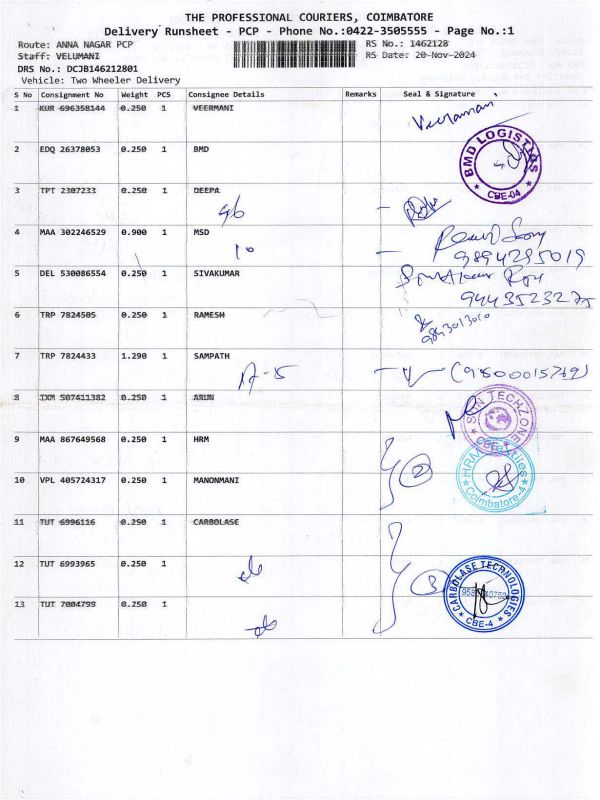 THE PROFESSIONAL COURIERS, COIMBATORE
Delivery Runsheet - PCP - Phone No.:0422-3505555 - Page No.:1
Route: ANNA NAGAR PCP
RS No.: 1462128
Staff: VELUMANI
RS Date: 20-Nov-2024
DRS No.: DCJB146212801
Vehicle: Two Wheeler Delivery
S No Consignment No Weight PCS Consignee Details Remarks Seal & Signature
1 KUR 696358144 0.250 1 VEERMANI
Veeramani
2 EDQ 26378053 0.250 1 BMD
BMD LOGISTICS
CBE-04
3 TPT 2307233 0.250 1 DEEPA
4 MAA 302246529 0.900 1 MSD
10
9894295019
5 DEL 530086554 0.250 1 SIVAKUMAR
9443523275
6 TRP 7824505 0.250 1 RAMESH
9843013010
7 TRP 7824433 1.290 1 SAMPATH
17-15
(9500015769)
8 IXM 507411382 0.250 1 ARUN
SUN TECHZONE
CBE-1
9 MAA 867649568 0.250 1 HRM
2
HRM Textiles
Coimbatore-4
10 VPL 405724317 0.250 1 MANONMANI
11 TUT 6996116 0.250 1 CARBOLASE
12 TUT 6993965 0.250 1
3
CARBOLASE TECHNOLOGIES
CBE-4
13 TUT 7004799 0.250 1